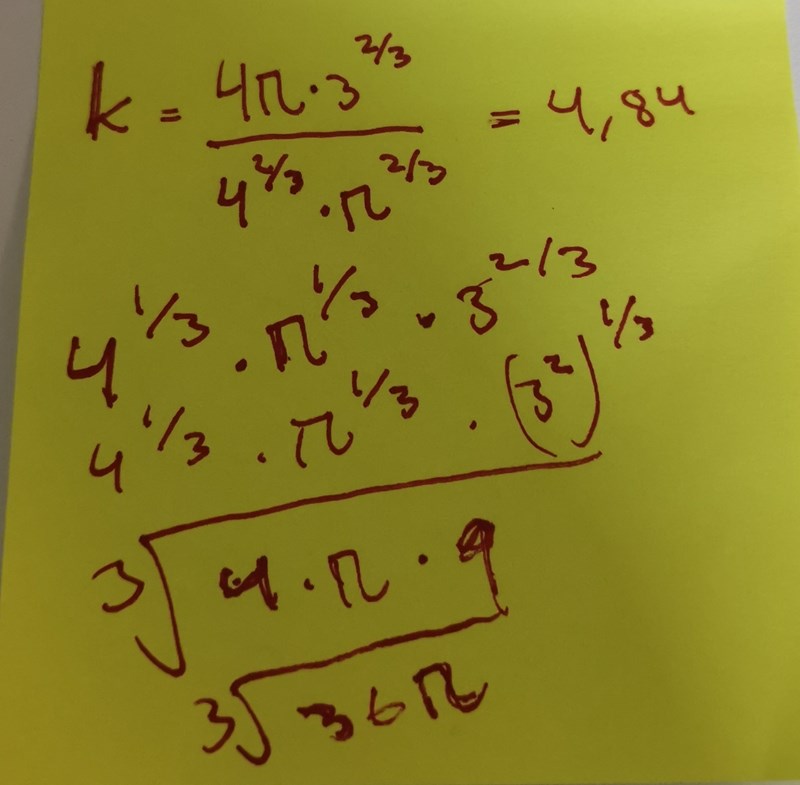 k = 4π·3^2/3 / 4^2/3 · π^2/3 = 4,84
4^1/3 · π^1/3 · 3^2/3
4^1/3 · π^1/3 · (3^2)^1/3
3√4·π·9
3√36π